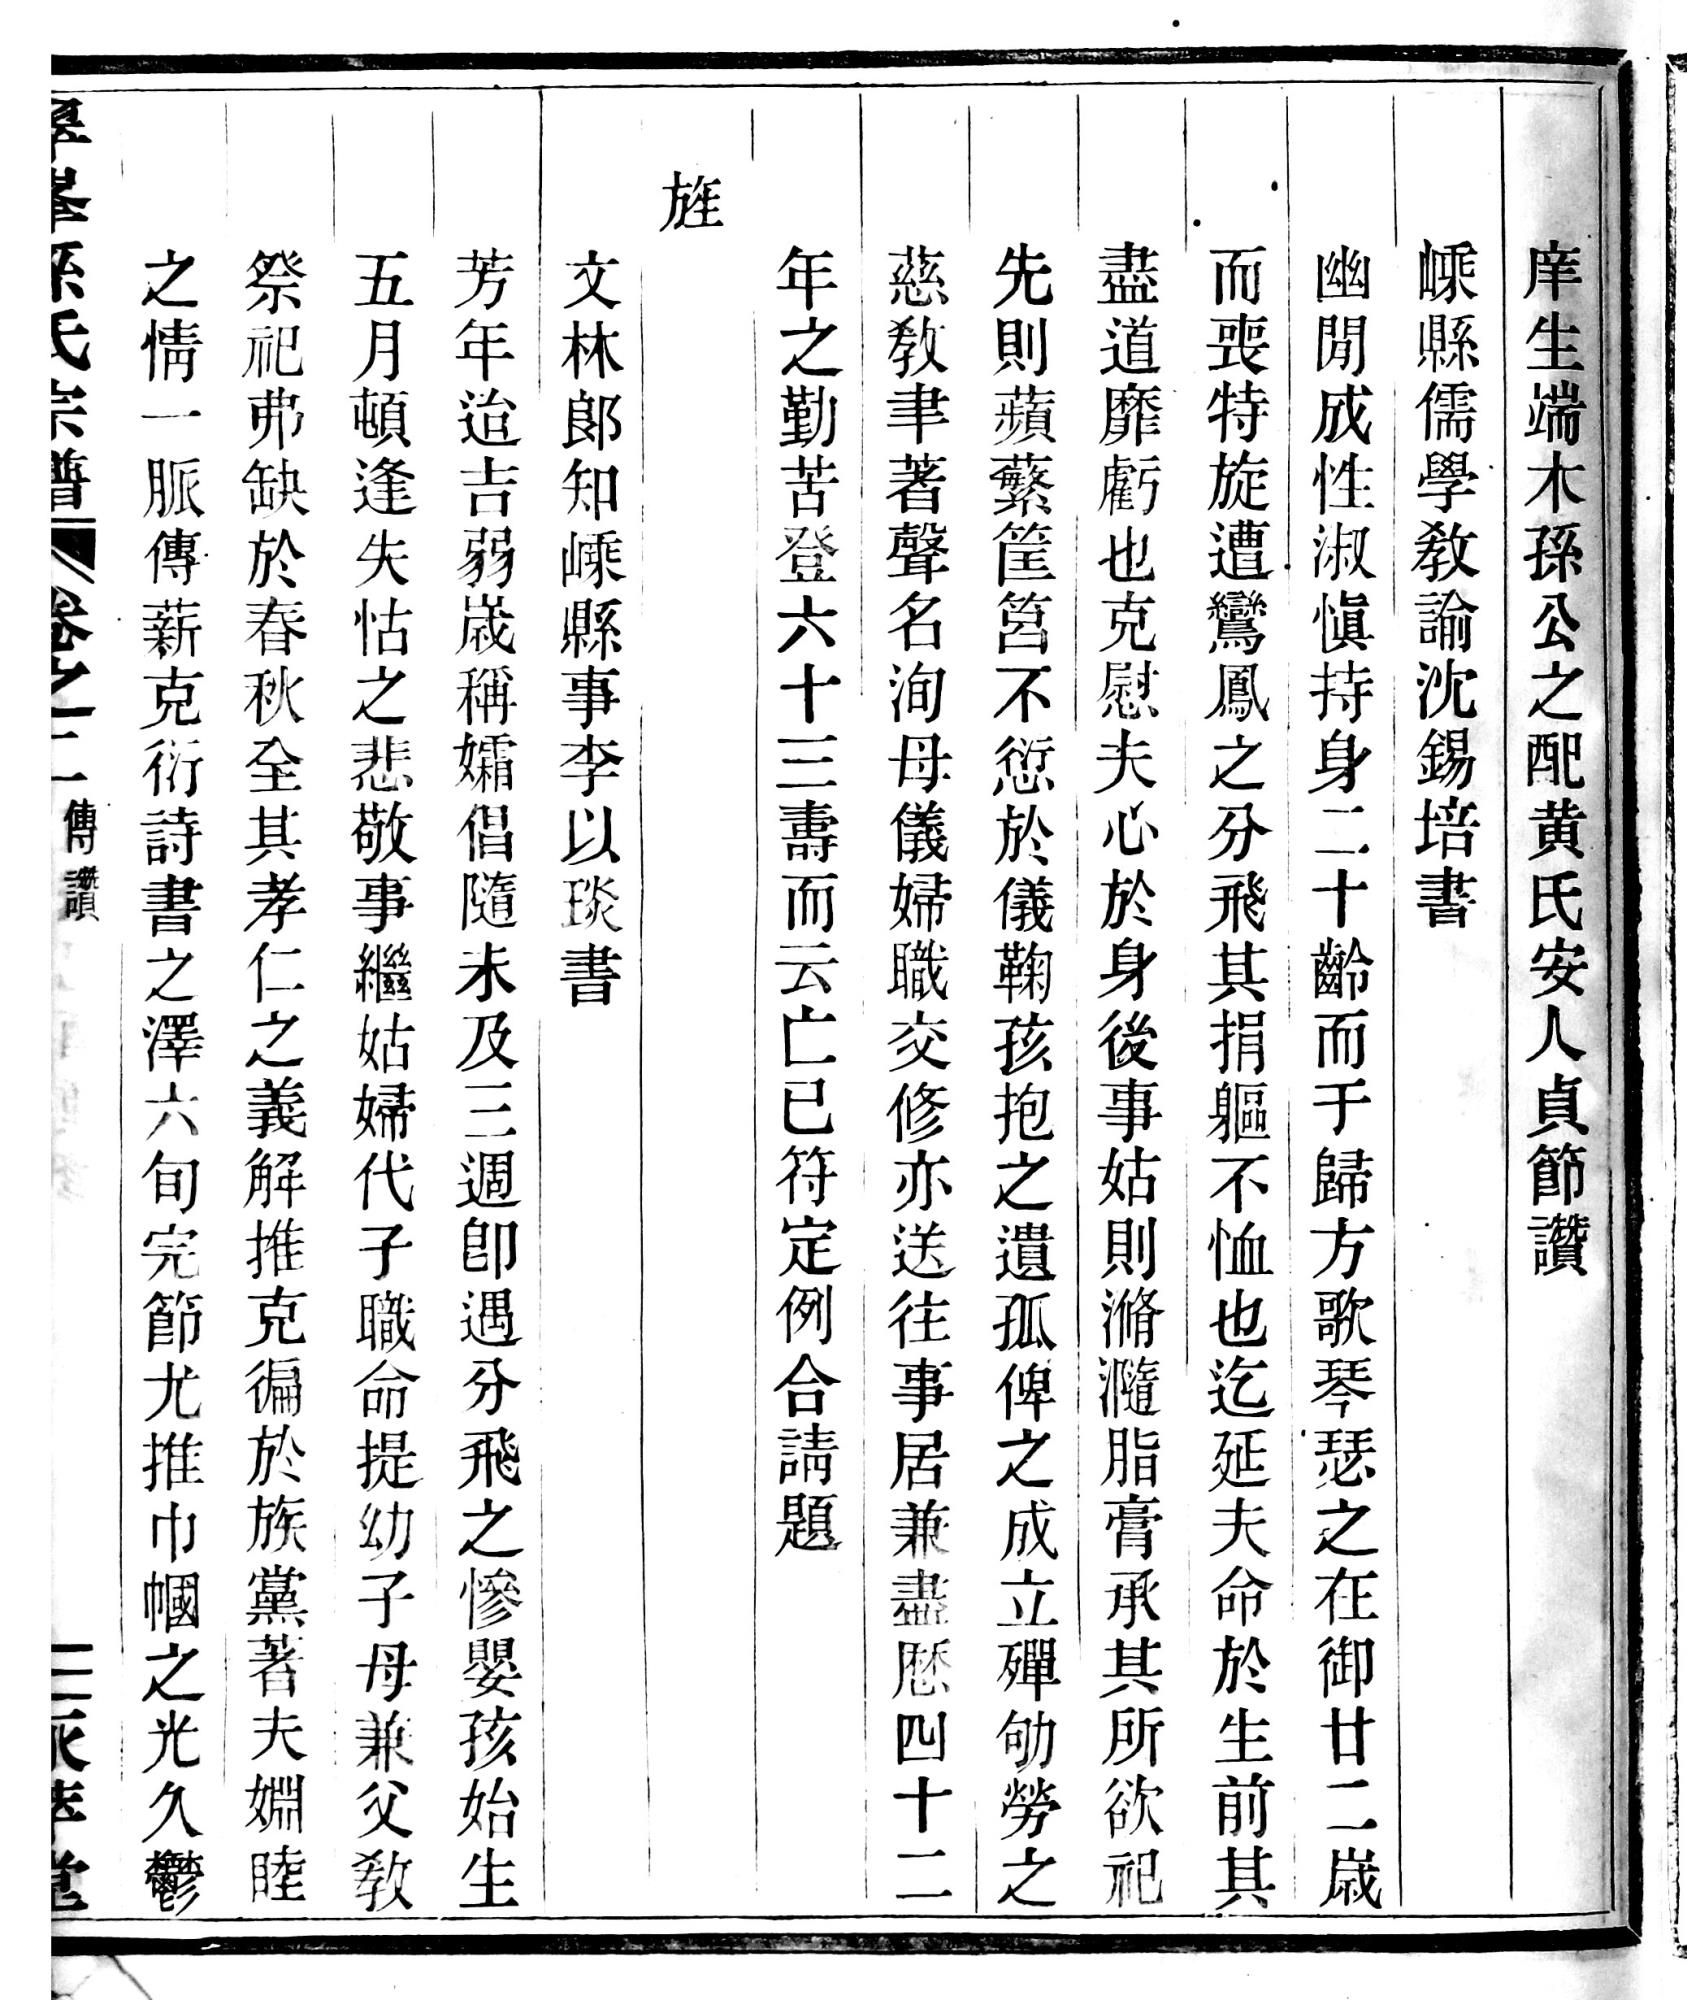 庠生端木孫公之配黄氏安人貞節讚
嵊縣儒學教諭沈錫培書
幽閒成性淑愼持身二十齡而于歸方歌琴瑟之在御廿二歲
而喪特旋遭鸞鳳之分飛其捐軀不恤也迄延夫命於生前其
盡道靡虧也克慰夫心於身後事姑則滫瀡脂膏承其所欲祀
先則蘋蘩筐筥不愆於儀鞠孩抱之遺孤俾之成立殫劬勞之
慈教聿著聲名洵母儀婦職交修亦送往事居兼盡厯四十二
年之勤苦登六十三壽而云亡已符定例合請題
旌
文林郎知嵊縣事李以琰書
芳年迨吉弱歲稱孀倡隨未及三週卽遇分飛之慘嬰孩始生
五月頓逢失怙之悲敬事繼姑婦代子職命提幼子母兼父教
祭祀弗缺於春秋全其孝仁之義解推克徧於族黨著夫婣睦
之情一脈傳薪克衍詩書之澤六旬完節尤推巾幗之光久鬱
孫氏宗譜 卷之二 傳讚 二 堂